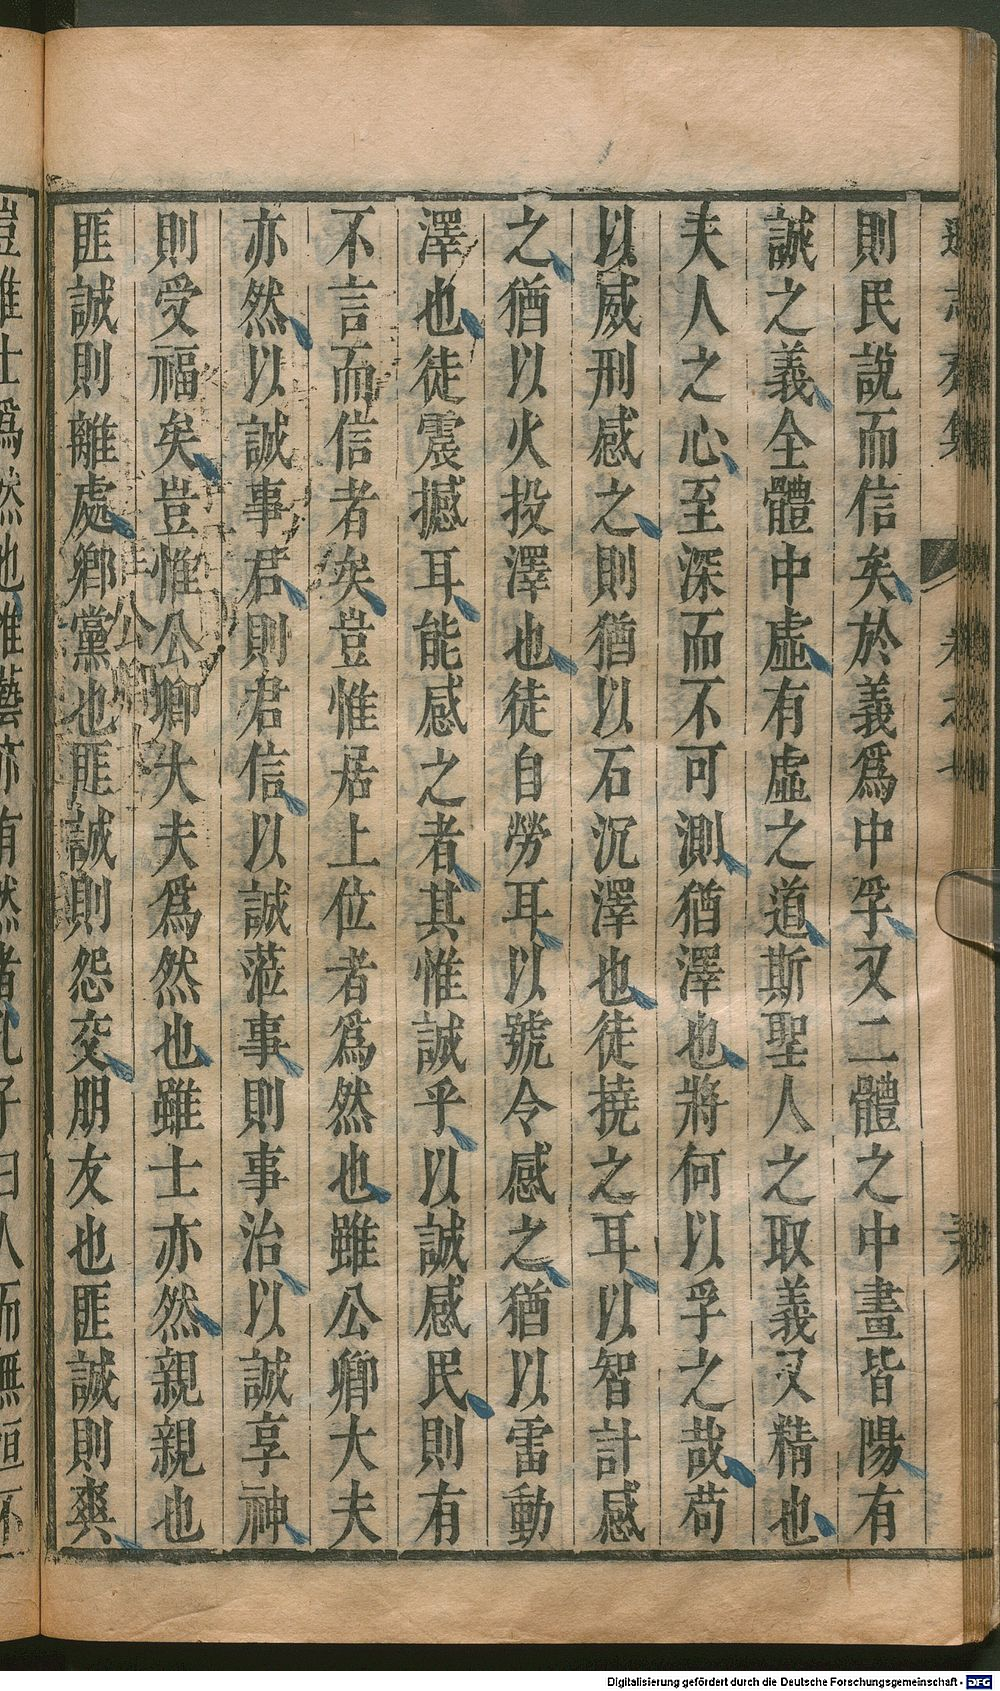 則民說而信矣於義爲中孚又二體之中畫皆陽有
誠之義全體中虛有虛之道斯聖人之取義又精也
夫人之心至深而不可測猶澤也將何以孚之哉苟
以威刑感之則猶以石沉澤也徒撓之耳以智計感
之猶以火投澤也徒自勞耳以號令感之猶以雷動
澤也徒震撼耳能感之者其惟誠乎以誠感民則有
不言而信者矣豈惟居上位者爲然也雖公卿大夫
亦然以誠事君則君信以誠蒞事則事治以誠享神
則受福矣豈惟公卿大夫爲然也雖士亦然親親也
匪誠則離處鄉黨也匪誠則怨交朋友也匪誠則爽
Digitalisierung gefördert durch die Deutsche Forschungsgemeinschaft - DFG